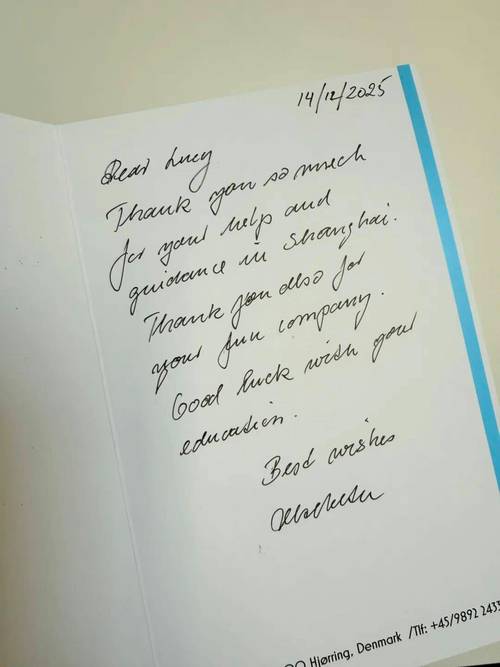 14/12/2025
Dear Lucy
Thank you so much
for your help and
guidance in Shanghai.
Thank you also for
your fun company.
Good luck with your
education.
Best wishes
Hjørring, Denmark /Tlf: +45/9892 2433